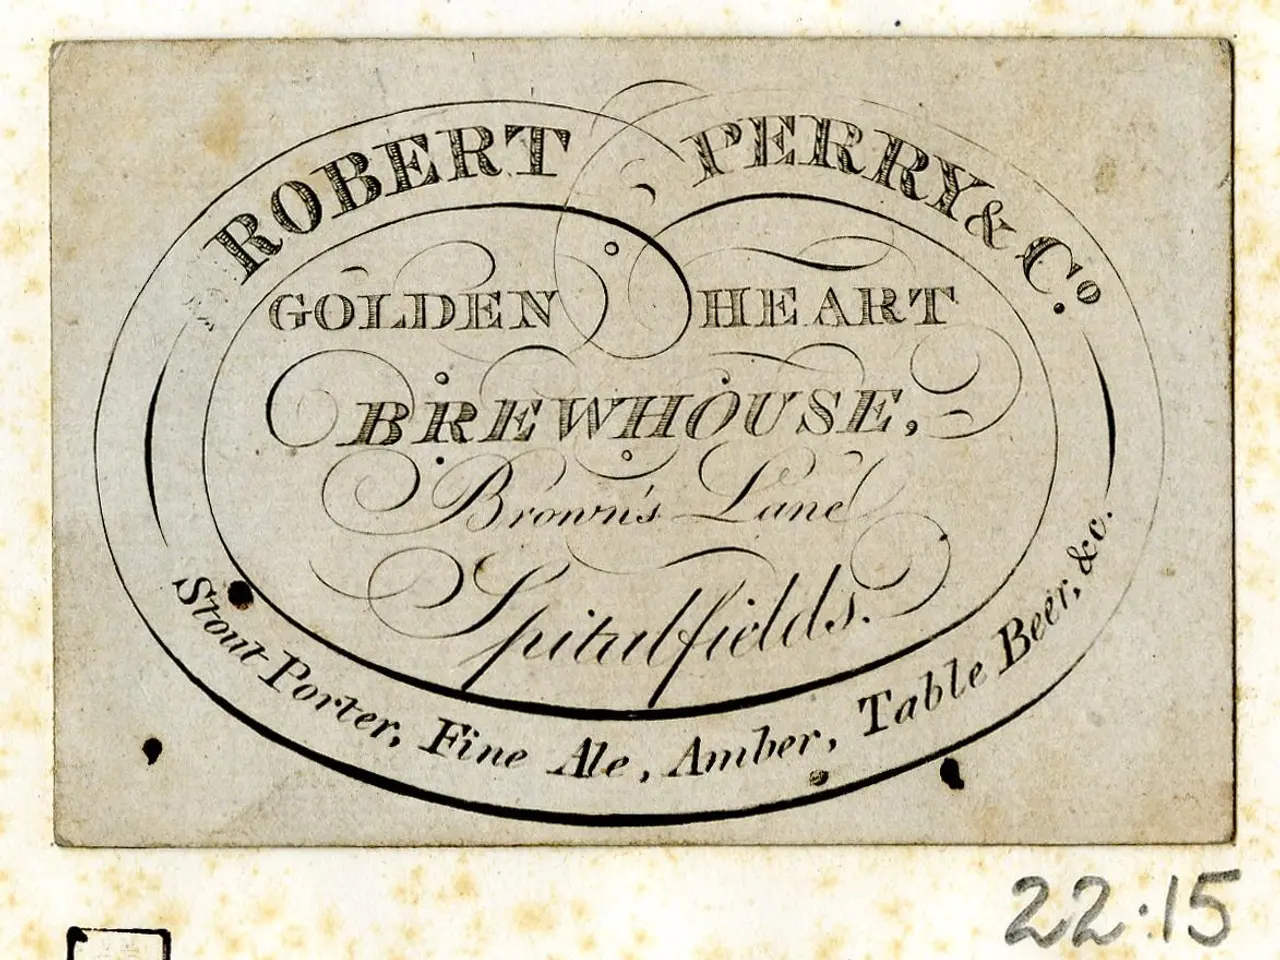 ROBERT PERRY & Co.
GOLDEN HEART
BREWHOUSE,
Brown's Lane
Spitalfields.
Stout Porter, Fine Ale, Amber, Table Beer, &c.
22:15